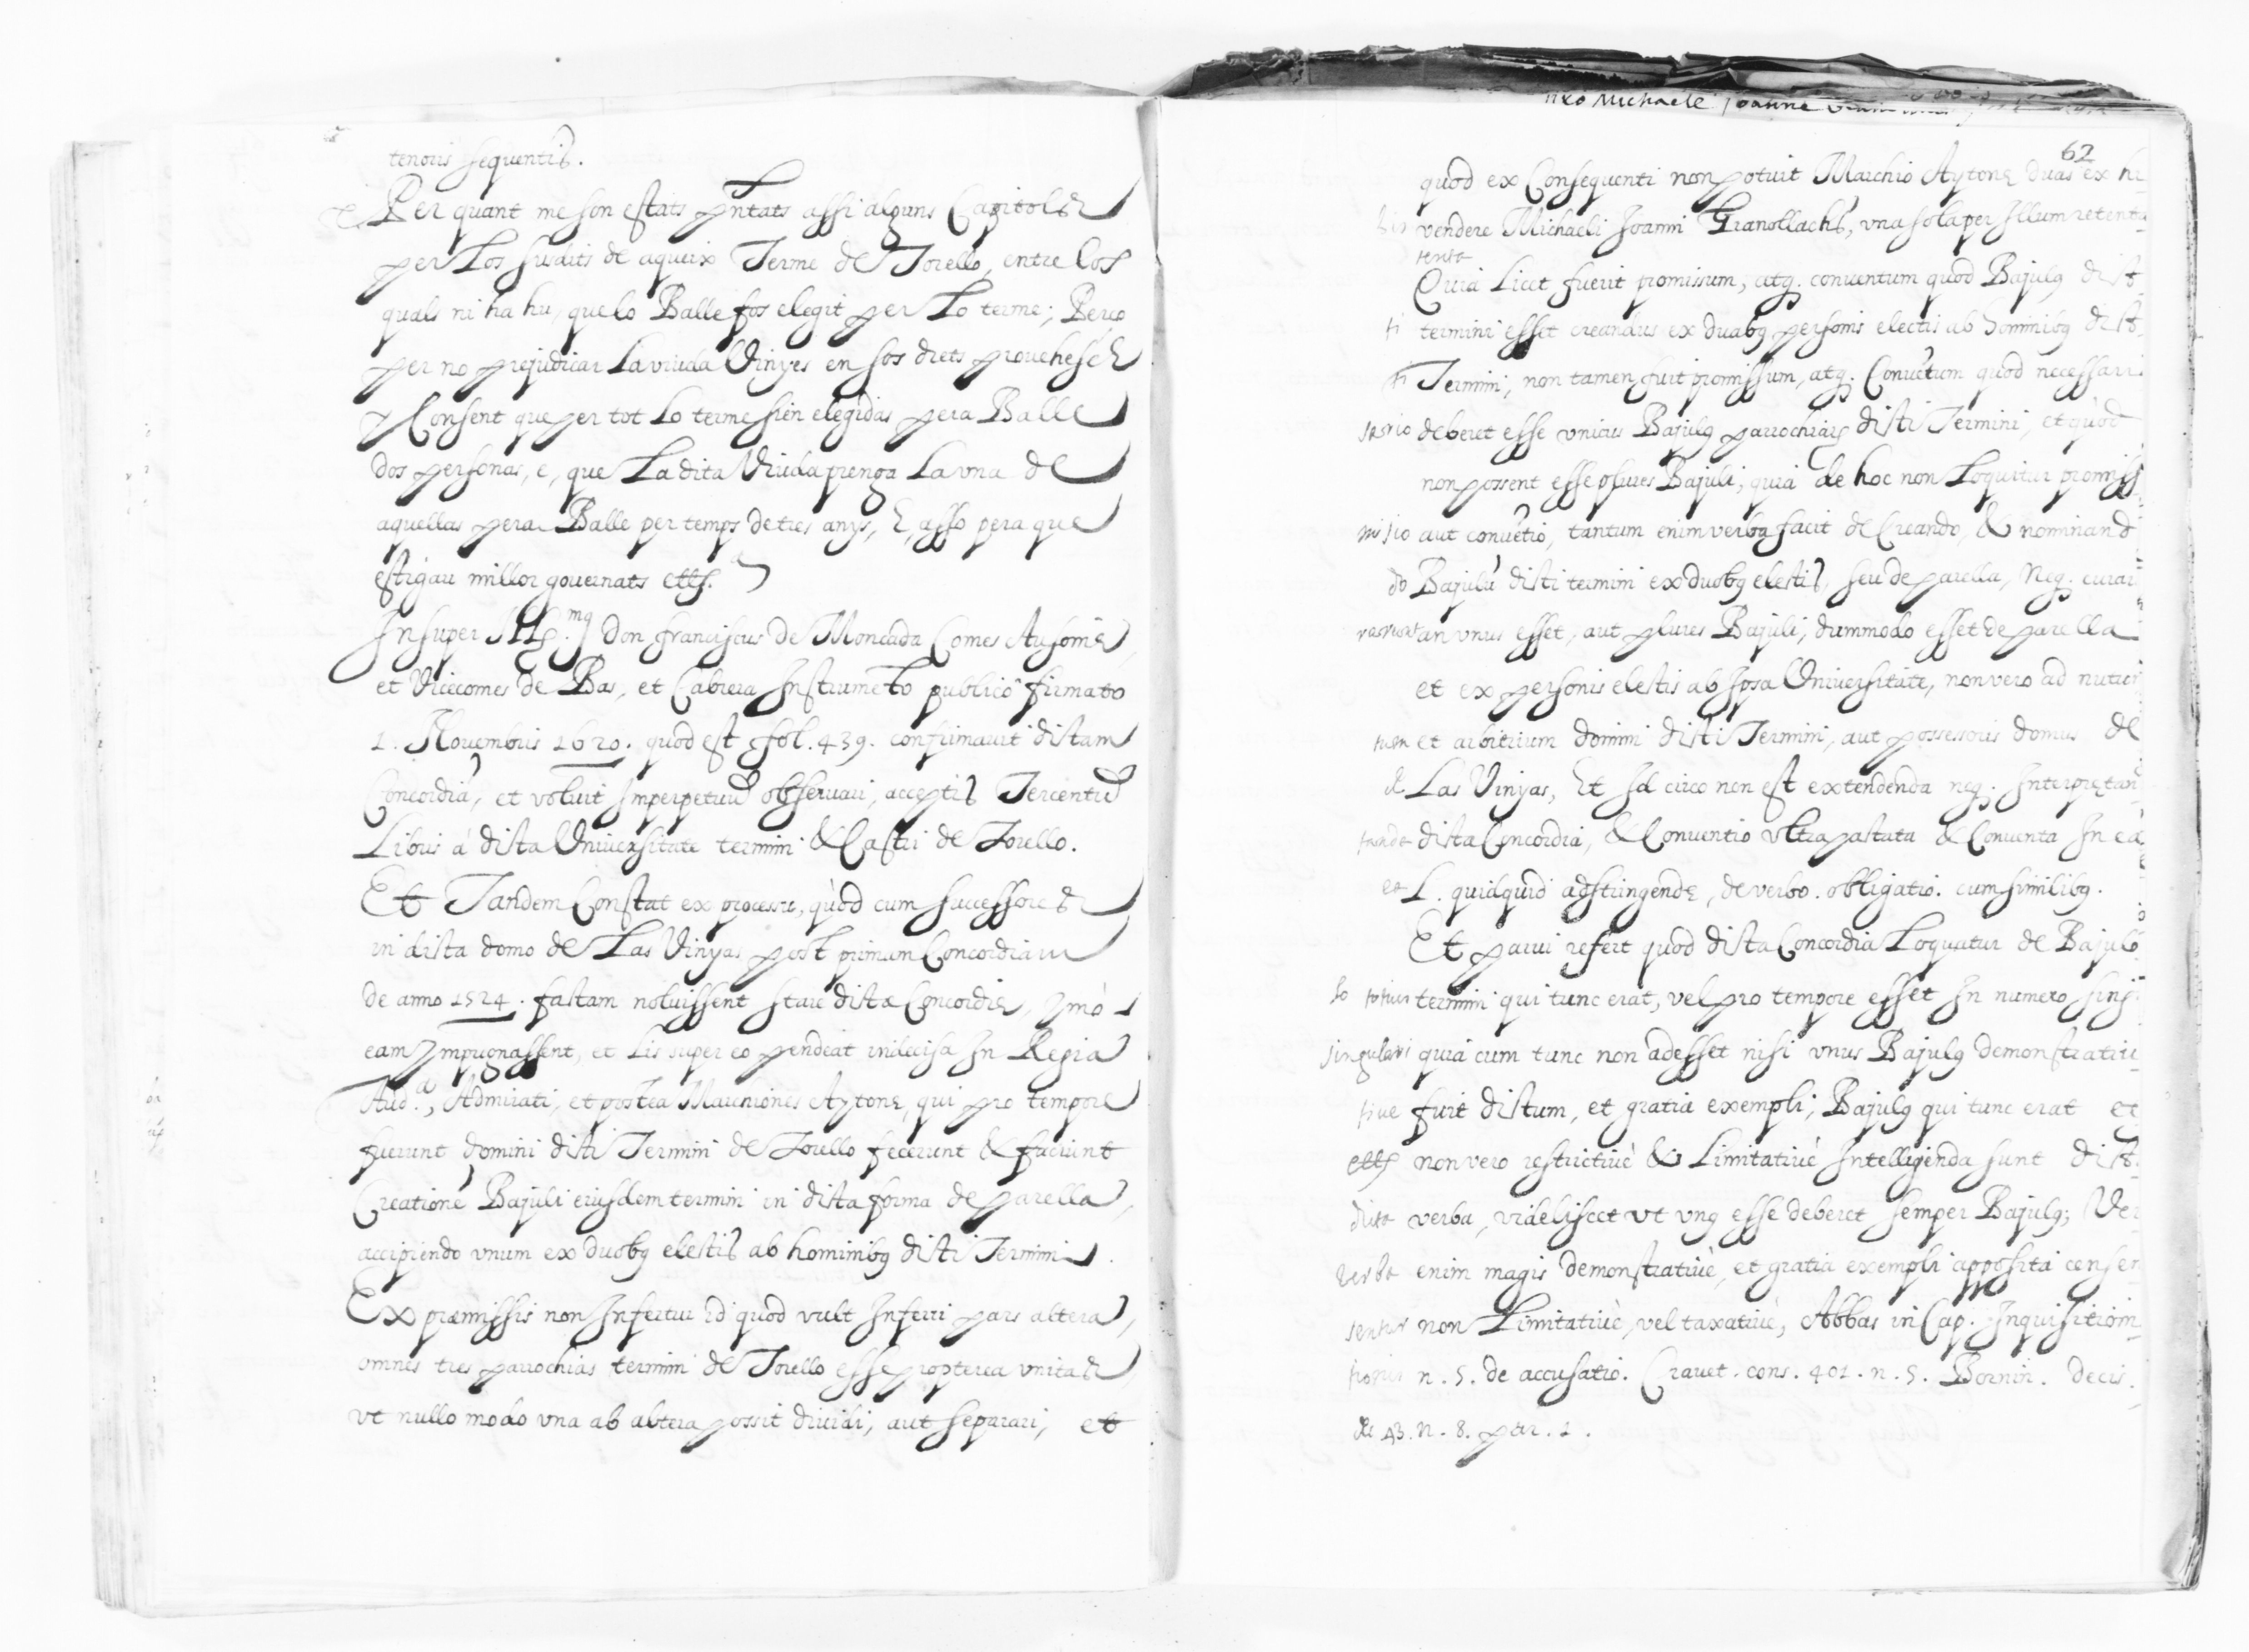 tenoris sequentis.
Per quant me son estats pntats assi alguns Capitols
per Los susdits de aqueix Terme de Torello, entre los
quals ni ha hu, que lo Balle fos elegit per Lo terme; Perço
per no prejudicar La viuda Vinyes en sos drets provehesch
y Consent que per tot Lo terme sien elegidas pera Balle
dos personas, e, que La dita Viuda prenga La vna de
aquellas pera Balle per temps de tres anys, E, asso pera que
estigau millor governats etts.
Insuper Ills.mg Don franciscus de Moncada Comes Ausonie,
et Vicecomes de Bas, et Cabrera Instrumeto publico firmato
1. Novembris 1620. quod est fol. 439. confirmavit dictam
Concordiã, et voluit Imperpetuũ observari, acceptis Tercentũ
Libris à dicta Universitate termini & Castri de Torello.
Et Tandem Constat ex processu, quòd cum successores
in dicta domo de Las Vinyas post primam Concordiam
de anno 1524. factam noluissent stare dictæ Concordiæ, ymò
eam Impugnassent, et Lis super eo pendeat indecisa In Regia
Aud.ª, Admirati, et postea Marchiones Aytone, qui pro tempore
fuerunt domini dicti Termini de Torello fecerunt & faciunt
Creationẽ Bajuli eiusdem termini in dicta forma de parella,
accipiendo vnum ex duobg electis ab hominibg dicti Termini.
Ex præmissis non Infertur id quod vult Inferri pars altera,
omnes tres parrochias termini de Torello esse propterea vnitas
vt nullo modo vna ab altera possit dividi, aut separari, et
62
quod ex Consequenti non potuit Marchio Aytone duas ex hi
bis vendere Michaeli Joanni Granollachs, vna sola per Illum retenta
tenta
Quia Licet fuerit promissum, atq. conventum quod Bajulg dict
ti termini esset creandus ex duabg personis electis ab hominibg dict
ti Termini, non tamen fuit promissum, atq. Convẽtum quod necessari
ssario deberet esse vnicus Bajulg parrochiarg dicti Termini, et quod
non possent esse plures Bajuli, quia de hoc non Loquitur promiss
missio aut convẽtio, tantum enim verba facit de Creando, & nominand
do Bajulũ dicti termini ex duobg electis, seu de parella, Neq. curar
an vnus esset, aut plures Bajuli, dummodo esset de parella
et ex personis electis ab Ipsa Universitate, non vero ad nutu
tum et arbitrium domini dicti Termini, aut possessoris domus de
de Las Vinyas, Et Id circo non est extendenda neq. Interpretan
tanda dicta Concordia, & Conventio vltra pactata & Conventa In ea
et L. quidquid adstringendæ, de verbo. obligatio. cum similibg.
Et parvi refert quod dicta Concordia Loquatur de Bajulo
lo totius termini qui tunc erat, vel pro tempore esset In numero sing
singulari quia cum tunc non adesset nisi vnus Bajulg demonstrativ
tive fuit dictum, et gratia exempli; Bajulg qui tunc erat et
etts non vero restrictivè & Limitativè Intelligenda sunt dict
dicta verba, videliscet vt vng esse deberet semper Bajulg; Ver
verba enim magis demonstrativè, et gratia exempli apposita censen
sentur non Limitativè, vel taxativè, Abbas in Cap. Inquisition
tionis n. 5. de accusatio. Cravet. cons. 401. n. 5. Bornin. decis.
de 43. n. 8. par. 1.